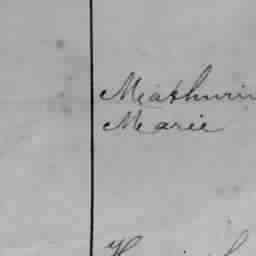 Mathurin
Marie